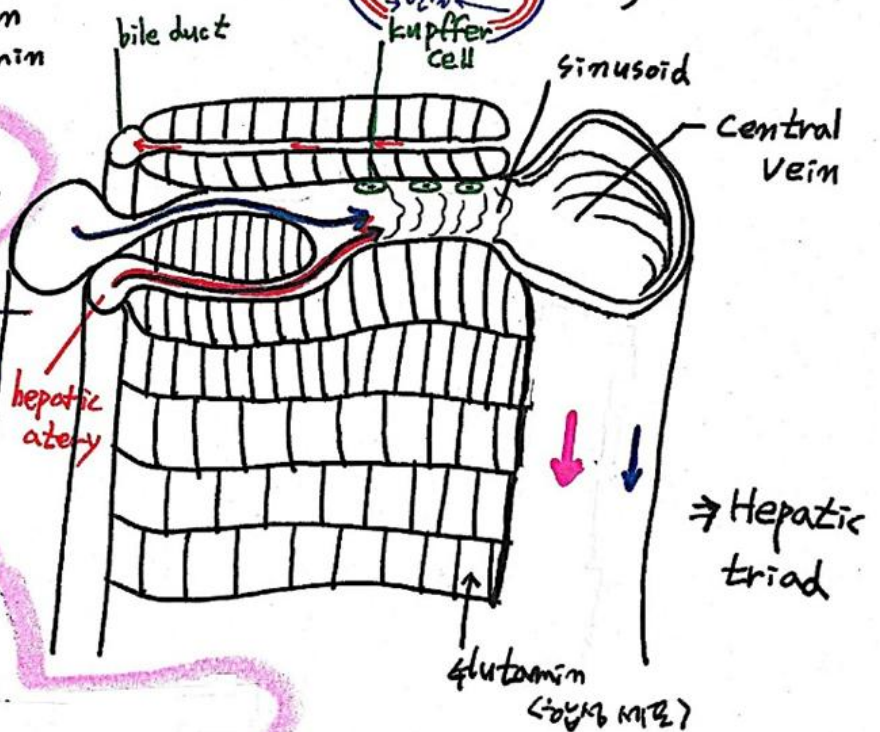 min
bile duct
kupffer
cell
sinusoid
Central
Vein
hepatic
atery
⇒ Hepatic
triad
glutamin